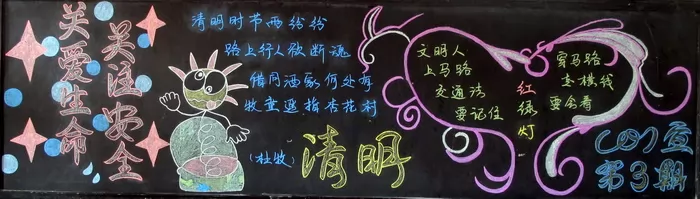 关爱生命
关注安全
清明时节雨纷纷
路上行人欲断魂
借问酒家何处有
牧童遥指杏花村
(杜牧)
清明
文明人
上马路
交通法
要记住
红绿灯
穿马路
走横线
要会看
第3期